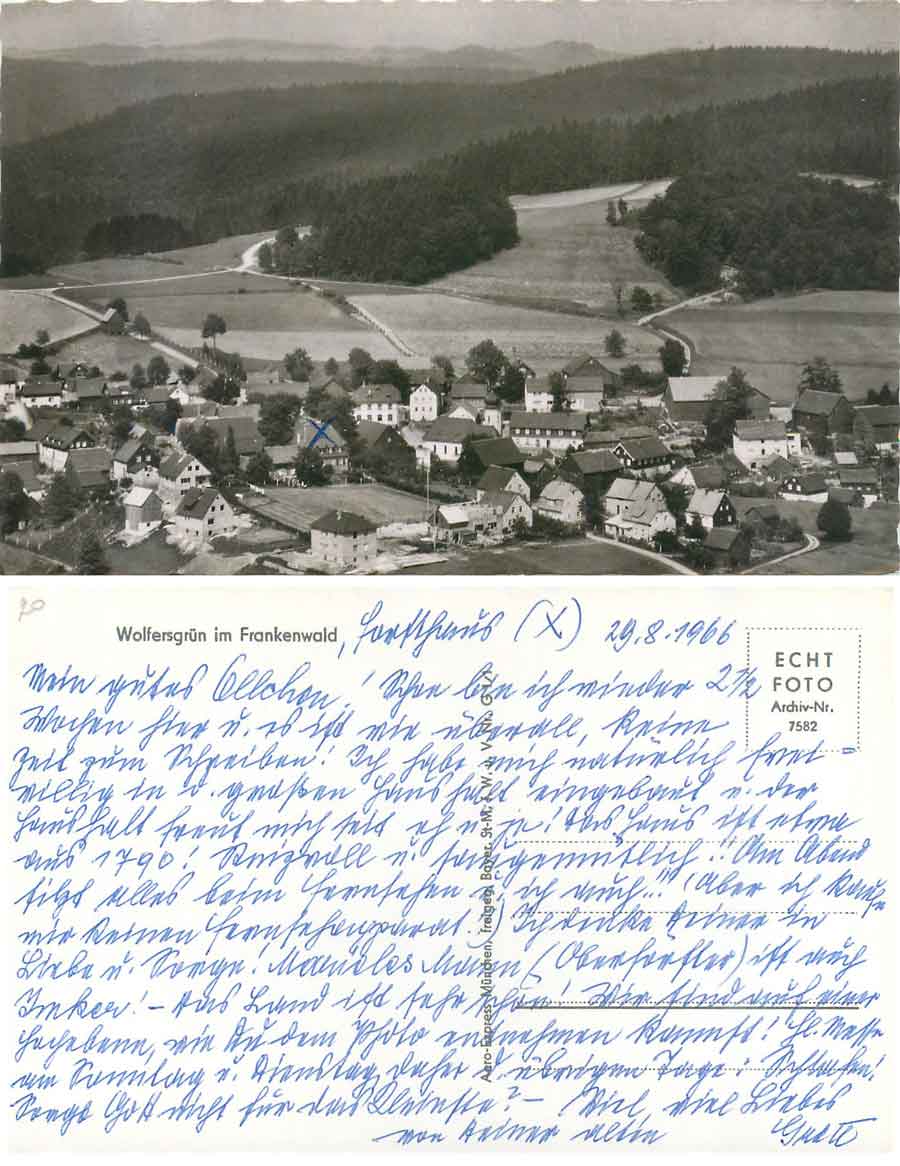 20
Wolfersgrün im Frankenwald, Forsthaus (X) 29.8.1966
ECHT
FOTO
Archiv-Nr.
7582
Mein gutes Ollchen! Schon bin ich wieder 2 1/2
Wochen hier u. es ist wie überall, keine
Zeit zum Schreiben! Ich habe mich natürlich frei-
willig in d. großen Haushalt eingebaut u. der
Haushalt freut mich seit eh u. je! Das Haus ist etwa
aus 1790! Reizvoll u. saugemütlich!! Am Abend
sitzt alles beim Fernsehen u. ich auch..! (Aber ich kaufe
mir keinen Fernsehapparat.) Ich denke Deiner in
Liebe u. Sorge! Mann (Oberförster) ist auch
Imker! - Das Land ist sehr schön! Wir sind auf einer
Hochebene, wie Du dem Photo entnehmen kannst! Hl. Messe
am Sonntag u. Dienstag, daher d. übrigen Tage: Schlafen!
Sorgt Gott nicht für das Kleinste? - Viel, viel Liebes
von Deiner alten
Aero-Express-München, freigeg. Bayer. St.M. f. W. u. V. Nr.